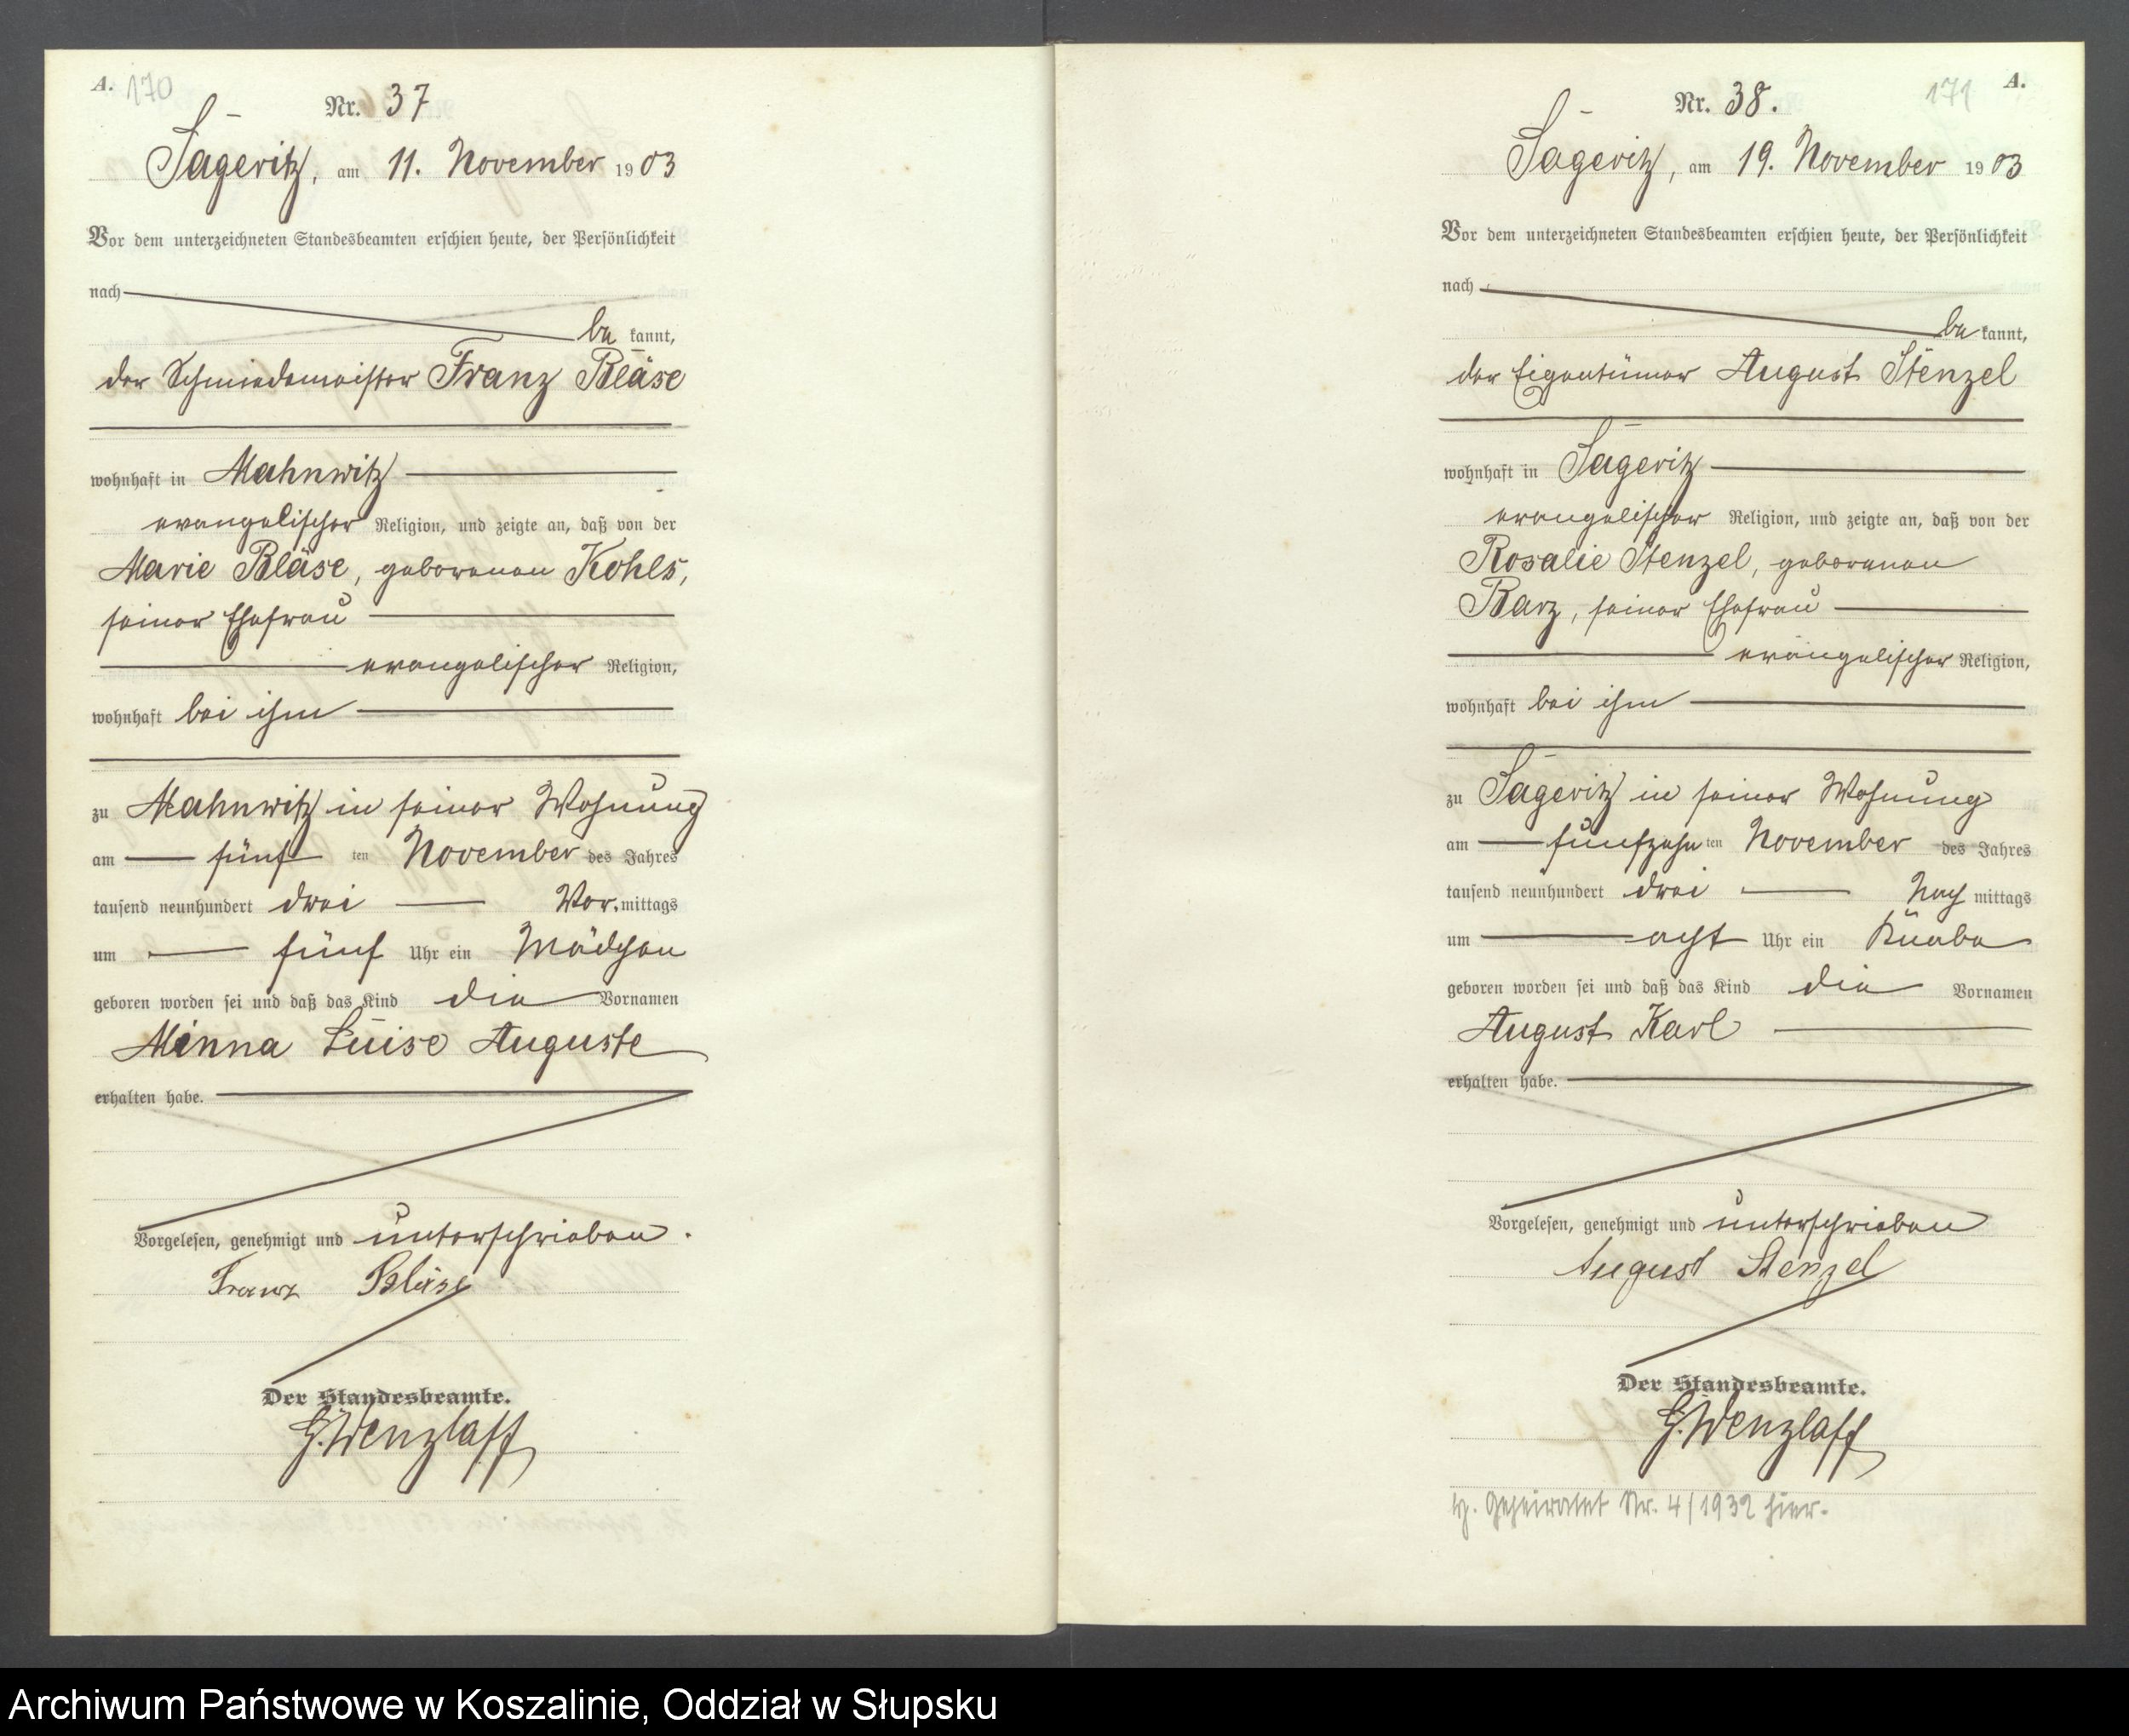 A. 170
Nr. 37
Sageritz, am 11. November 1903
Vor dem unterzeichneten Standesbeamten erschien heute, der Persönlichkeit
nach
be kannt,
der Schmiedemeister Franz Bläse
wohnhaft in Mahnwitz
evangelischer Religion, und zeigte an, daß von der
Marie Bläse, geborenen Kohls,
seiner Ehefrau
evangelischer Religion,
wohnhaft bei ihm
zu Mahnwitz in seiner Wohnung
am fünf ten November des Jahres
tausend neunhundert drei Vor. mittags
um fünf Uhr ein Mädchen
geboren worden sei und daß das Kind die Vornamen
Minna Luise Auguste
erhalten habe.
Vorgelesen, genehmigt und unterschrieben.
Franz Bläse
Der Standesbeamte.
G. Wenzlaff
171 A.
Nr. 38.
Sageritz, am 19. November 1903
Vor dem unterzeichneten Standesbeamten erschien heute, der Persönlichkeit
nach
be kannt,
der Eigentümer August Stenzel
wohnhaft in Sageritz
evangelischer Religion, und zeigte an, daß von der
Rosalie Stenzel, geborenen
Barz, seiner Ehefrau
evangelischer Religion,
wohnhaft bei ihm
zu Sageritz in seiner Wohnung
am fünfzehn ten November des Jahres
tausend neunhundert drei Nach mittags
um acht Uhr ein Knabe
geboren worden sei und daß das Kind die Vornamen
August Karl
erhalten habe.
Vorgelesen, genehmigt und unterschrieben
August Stenzel
Der Standesbeamte.
G. Wenzlaff
Geheiratet Nr. 4/1932 hier.
Archiwum Państwowe w Koszalinie, Oddział w Słupsku